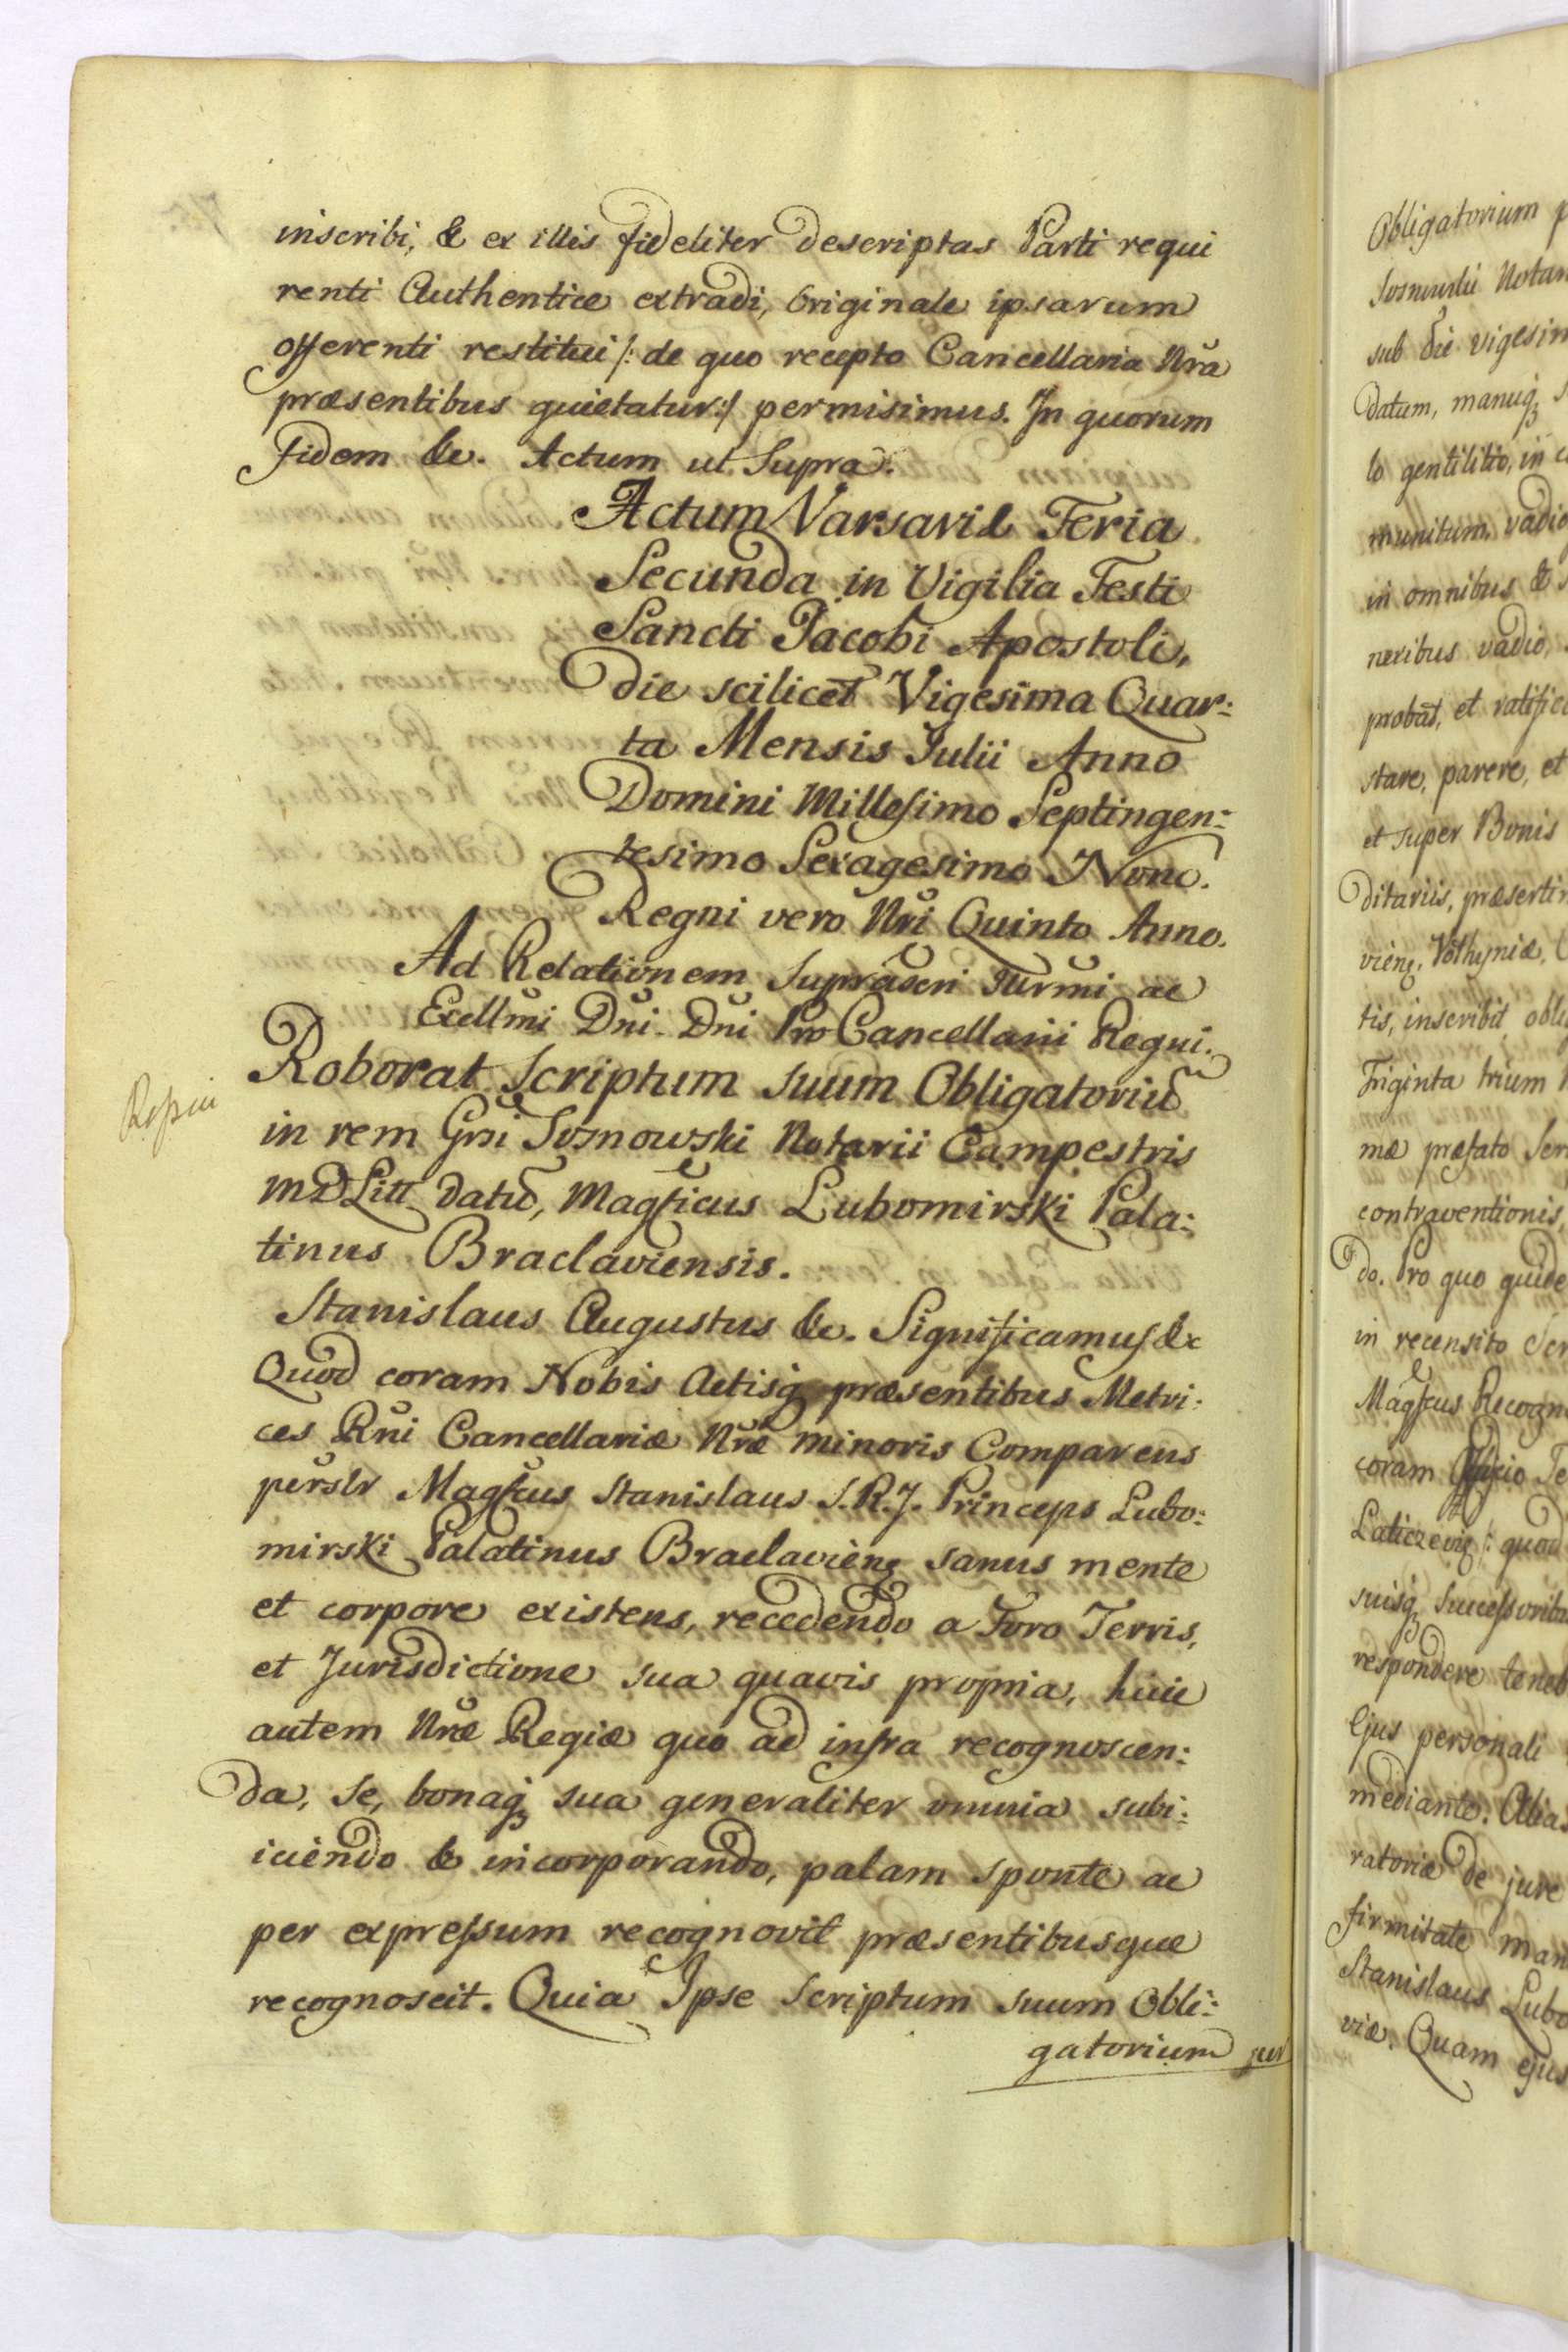 inscribi, & ex illis fideliter descriptas Parti requi
renti Authentice extradi, Originale ipsarum
offerenti restitui /: de quo recepto Cancellaria Nra
præsentibus quietatur :/ permisimus. In quorum
Fidem &c. Actum ut Supra.
Actum Varsaviæ Feria
Secunda in Vigilia Festi
Sancti Jacobi Apostoli,
die scilicet Vigesima Quar:
ta Mensis Julii Anno
Domini Millesimo Septingen:
tesimo Sexagesimo Nono.
Regni vero Nri Quinto Anno.
Ad Relationem Suprascri Illrmi ac
Excellmi Dni Dni Pro Cancellarii Regni.
Roborat Scriptum suum Obligatoriu
in rem Grsi Sosnowski Notarii Campestris
MDLitt datu, Magficus Lubomirski Pala:
tinus Braclaviensis.
Stanislaus Augustus &c. Significamus &c
Quod coram Nobis Actisq præsentibus Metri:
ces Rni Cancellariæ Nræ minoris Comparens
perslr Magfcus Stanislaus S. R. J. Princeps Lubo:
mirski Palatinus Braclavien sanus mente
et corpore existens, recedendo a Foro Terris,
et Jurisdictione sua quavis propria, huic
autem Nræ Regiæ quo ad infra recognoscen:
da, se, bonaq sua generaliter omnia subi:
iciendo & incorporando, palam sponte ac
per expressum recognovit præsentibusque
recognoscit. Quia Ipse Scriptum suum Obli:
gatorium
Obligatorium
sub die
datum, manuq
lo gentilitio, in
munitum, vadio
in omnibus &
neribus vadio,
probat, et
stare, parere, et
et super Bonis
ditariis,
vien, Volhyniæ,
tis, inscribit
Triginta trium
mæ præfato
contraventionis,
do. Pro quo
in recensito
Magfcus
coram Officio
quod
suisq
respondere
Ejus personali
mediante.
ratoriæ de jure
firmitate
Stanislaus
viæ. Quam ejus